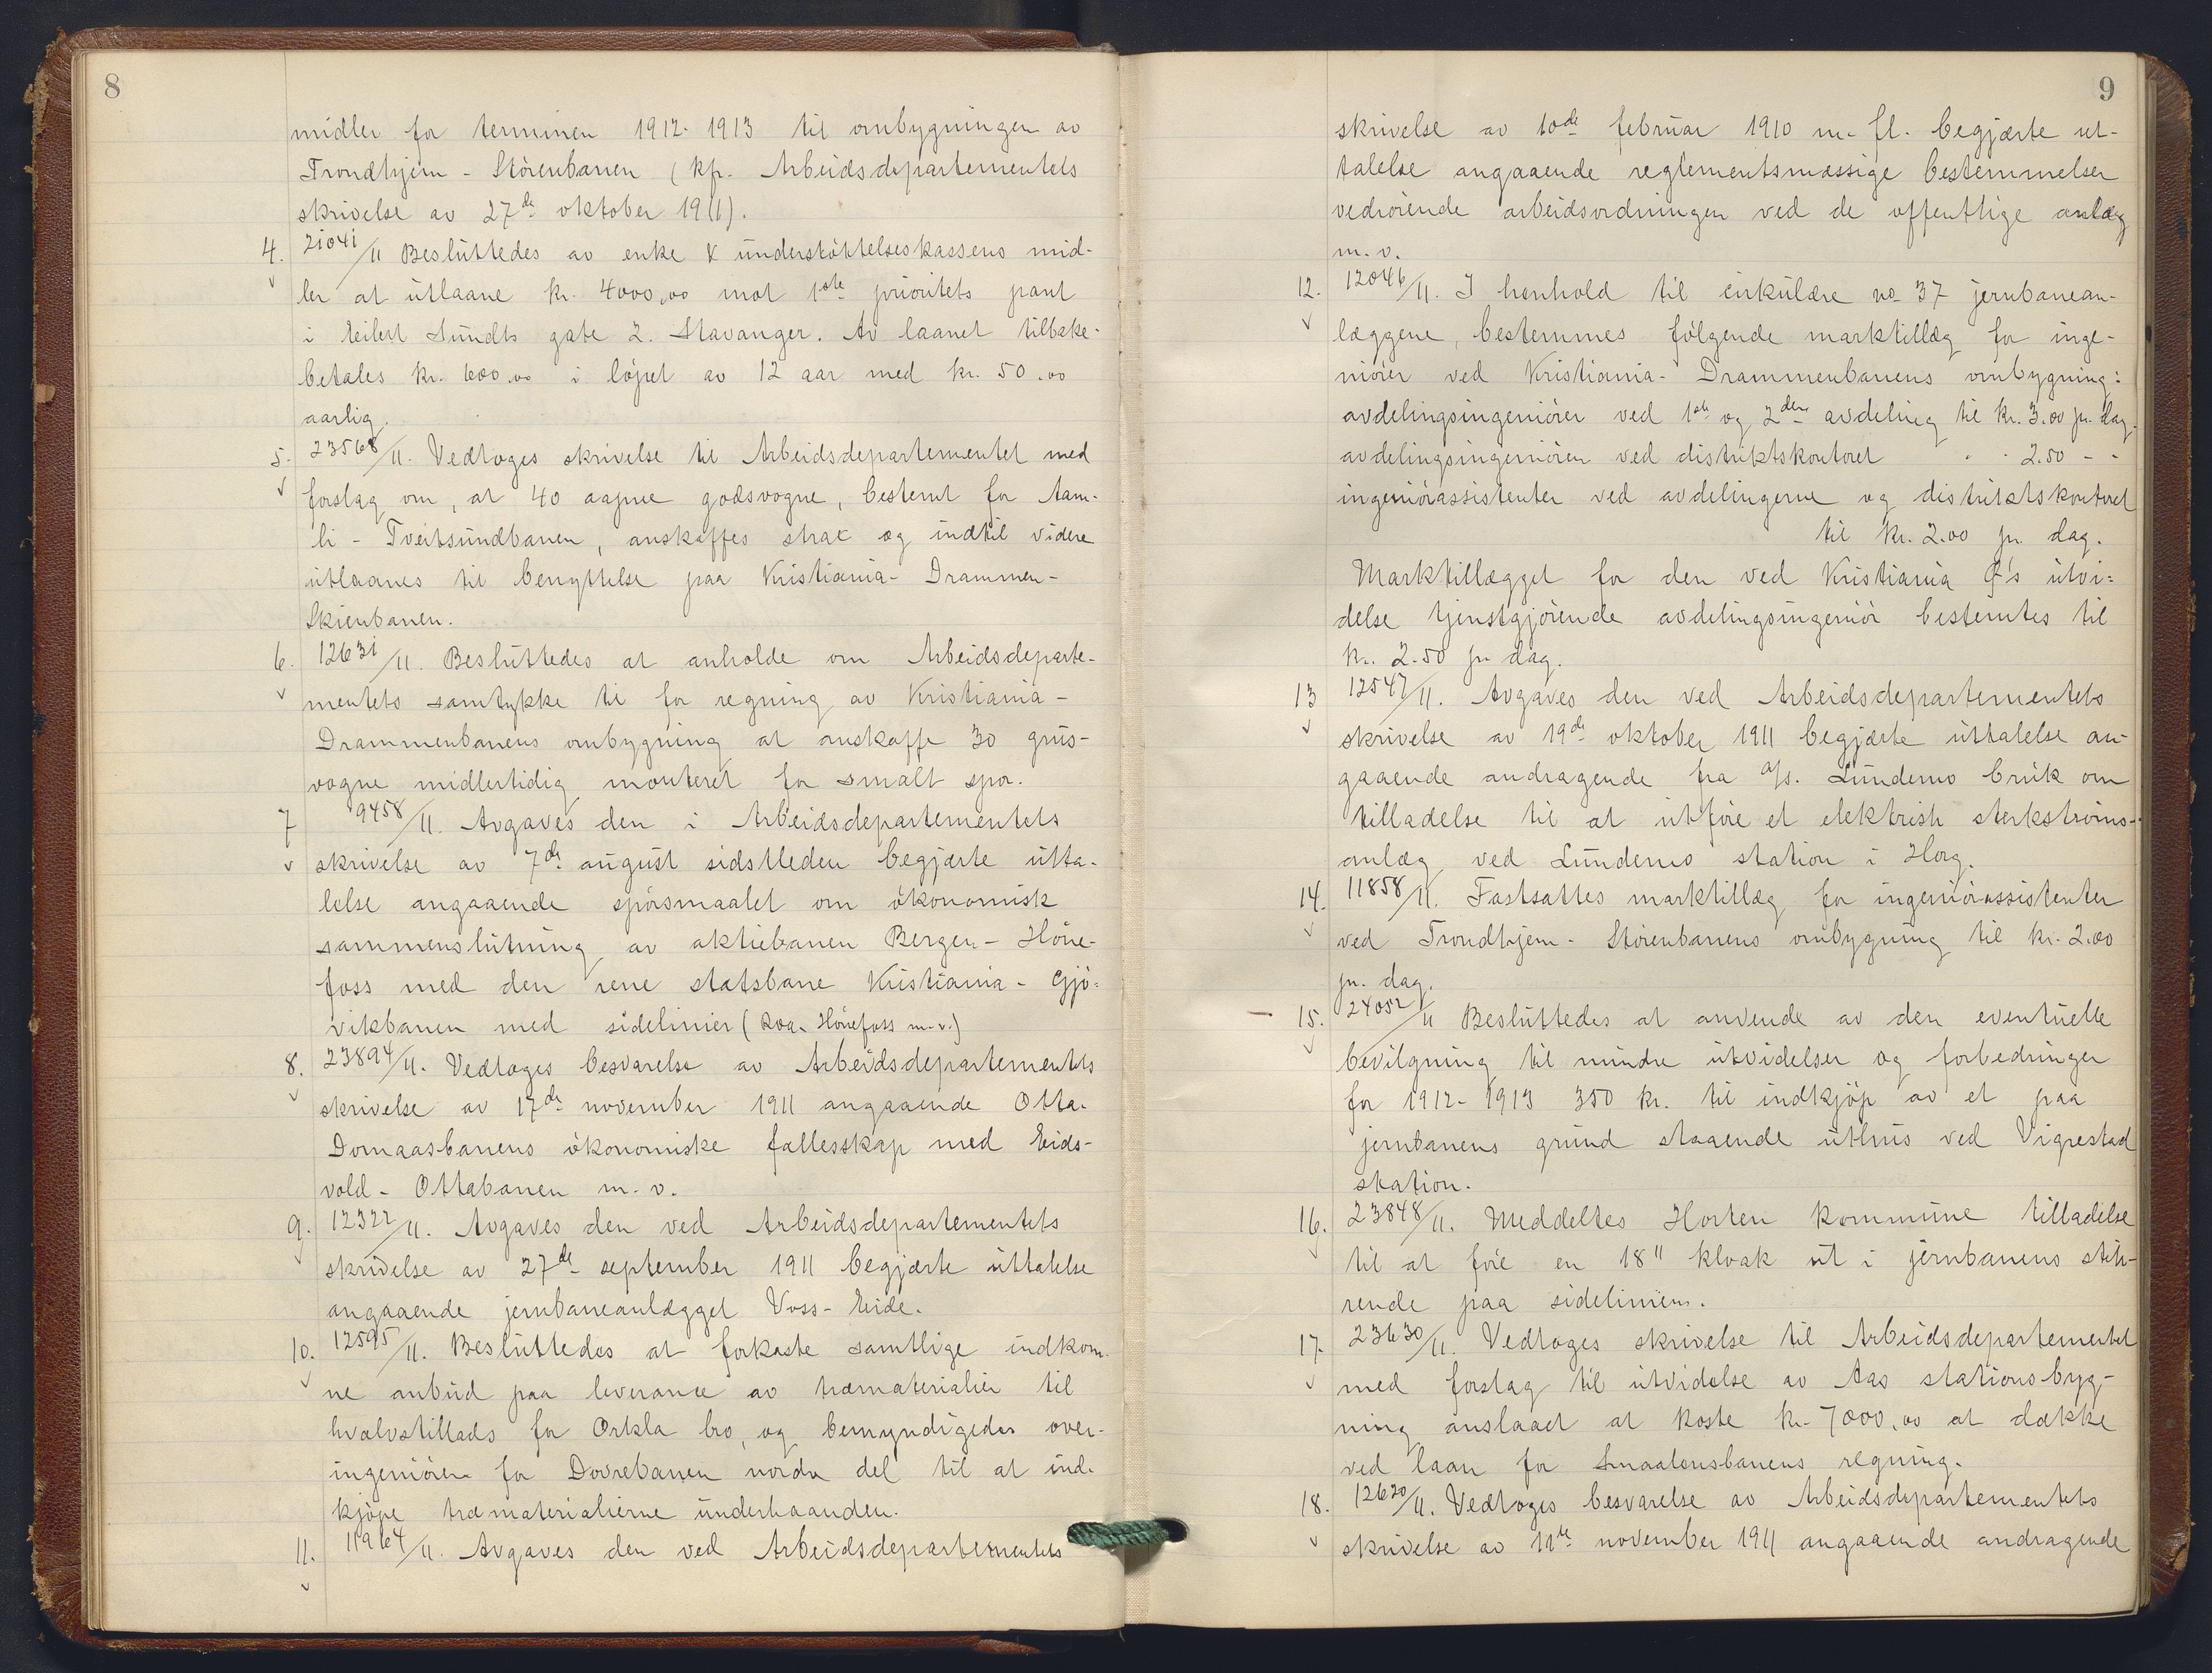 8
midler for terminen 1912-1913 til ombygningen av
Trondhjem - Störenbanen (kfr. Arbeidsdepartementets
skrivelse av 27de oktober 1911).
4. 21041/11 Besluttedes av enke & understöttelseskassens mid-
ler at utlaane kr. 4000,00 mot 1ste prioritets pant
i Eilert Sundts gate 2. Stavanger. Av laanet tilbake-
betales kr. 600.00 i löpet av 12 aar med kr. 50.00
aarlig.
5. 23568/11. Vedtoges skrivelse til Arbeidsdepartementet med
forslag om, at 40 aapne godsvogne, bestemt for Aam-
li - Tveitsundbanen, anskaffes strax og indtil videre
utlaanes til benyttelse paa Kristiania- Drammen-
Skienbanen.
6. 12631/11. Besluttedes at anholde om Arbeidsdeparte-
mentets samtykke til for regning av Kristiania-
Drammenbanens ombygning at anskaffe 30 grus-
vogne midlertidig monteret for smalt spor.
7 9458/11. Avgaves den i Arbeidsdepartementets
skrivelse av 7de august sidstleden begjærte utta-
lelse angaaende spörsmaalet om ökonomisk
sammenslutning av aktiebanen Bergen- Höne-
foss med den rene statsbane Kristiania- Gjö-
vikbanen med sidelinier (Roa- Hönefoss m.v.)
8. 23894/11. Vedtoges besvarelse av Arbeidsdepartementets
skrivelse av 17de november 1911 angaaende Otta-
Domaasbanens ökonomiske fællesskap med Eids-
vold- Ottabanen m.v.
9. 12322/11. Avgaves den ved Arbeidsdepartementets
skrivelse av 27de september 1911 begjærte uttalelse
angaaende jernbaneanlægget Voss- Eide.
10. 12595/11. Besluttedes at forkaste samtlige indkom-
ne anbud paa leverance av træmaterialier til
hvælvstillads for Orkla bro, og bemyndigedes over-
ingeniören for Dovrebanen nordre del til at ind-
kjöpe træmaterialierne underhaanden.
11. 11964/11. Avgaves den ved Arbeidsdepartementets
9
skrivelse av 10de februar 1910 m. fl. begjærte ut-
talelse angaaende reglementsmæssige bestemmelser
vedrörende arbeidsordningen ved de offentlige anlæg
m.v.
12. 12046/11. I henhold til cirkulære no 37 jernbanean-
læggene, bestemmes fölgende marktillæg for inge-
niörer ved Kristiania- Drammenbanens ombygning:
avdelingsingeniörer ved 1ste og 2den avdeling til kr. 3.00 pr. dag.
avdelingsingeniören ved distriktskontoret " " 2.50 - -
ingeniörassistenter ved avdelingerne og distriktskontoret
til kr. 2.00 pr. dag.
Marktillægget for den ved Kristiania Ø's utvi-
delse tjenstgjörende avdelingsingeniör bestemtes til
kr. 2.50 pr dag.
13 12547/11. Avgaves den ved Arbeidsdepartementets
skrivelse av 19de oktober 1911 begjærte uttalelse an-
gaaende andragende fra A/s. Lundemo bruk om
tilladelse til at utföre et elektrisk sterkströms-
anlæg ved Lundemo station i Horg.
14. 11858/11. Fastsattes marktillæg for ingeniörassistenter
ved Trondhjem- Störenbanens ombygning til kr. 2.00
pr. dag.
15. 24052/11 Besluttedes at anvende av den eventuelle
bevilgning til mindre utvidelser og forbedringer
for 1912-1913 350 kr. til indkjöp av et paa
jernbanens grund staaende uthus ved Vigrestad
station.
16. 23848/11. Meddeltes Horten kommune tilladelse
til at före en 18" kloak ut i jernbanens stik-
rende paa sidelinien.
17. 23630/11. Vedtoges skrivelse til Arbeidsdepartementet
med forslag til utvidelse av Aas stationsbyg-
ning anslaaet at koste kr. 7000,00 at dække
ved laan for Smaalensbanens regning.
18. 12620/11. Vedtoges besvarelse av Arbeidsdepartementets
skrivelse av 11te november 1911 angaaende andragende